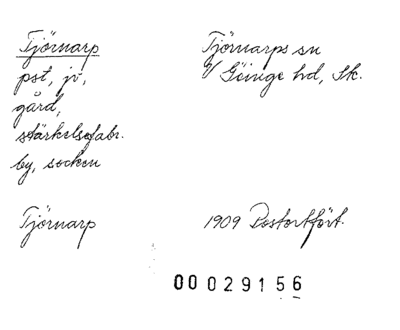 Tjörnarp
pst, jv,
gård,
stärkelsefabr.
by, socken
Tjörnarps sn
V Göinge hd, Sk.
Tjörnarp
1909 Postortfört.
00029156